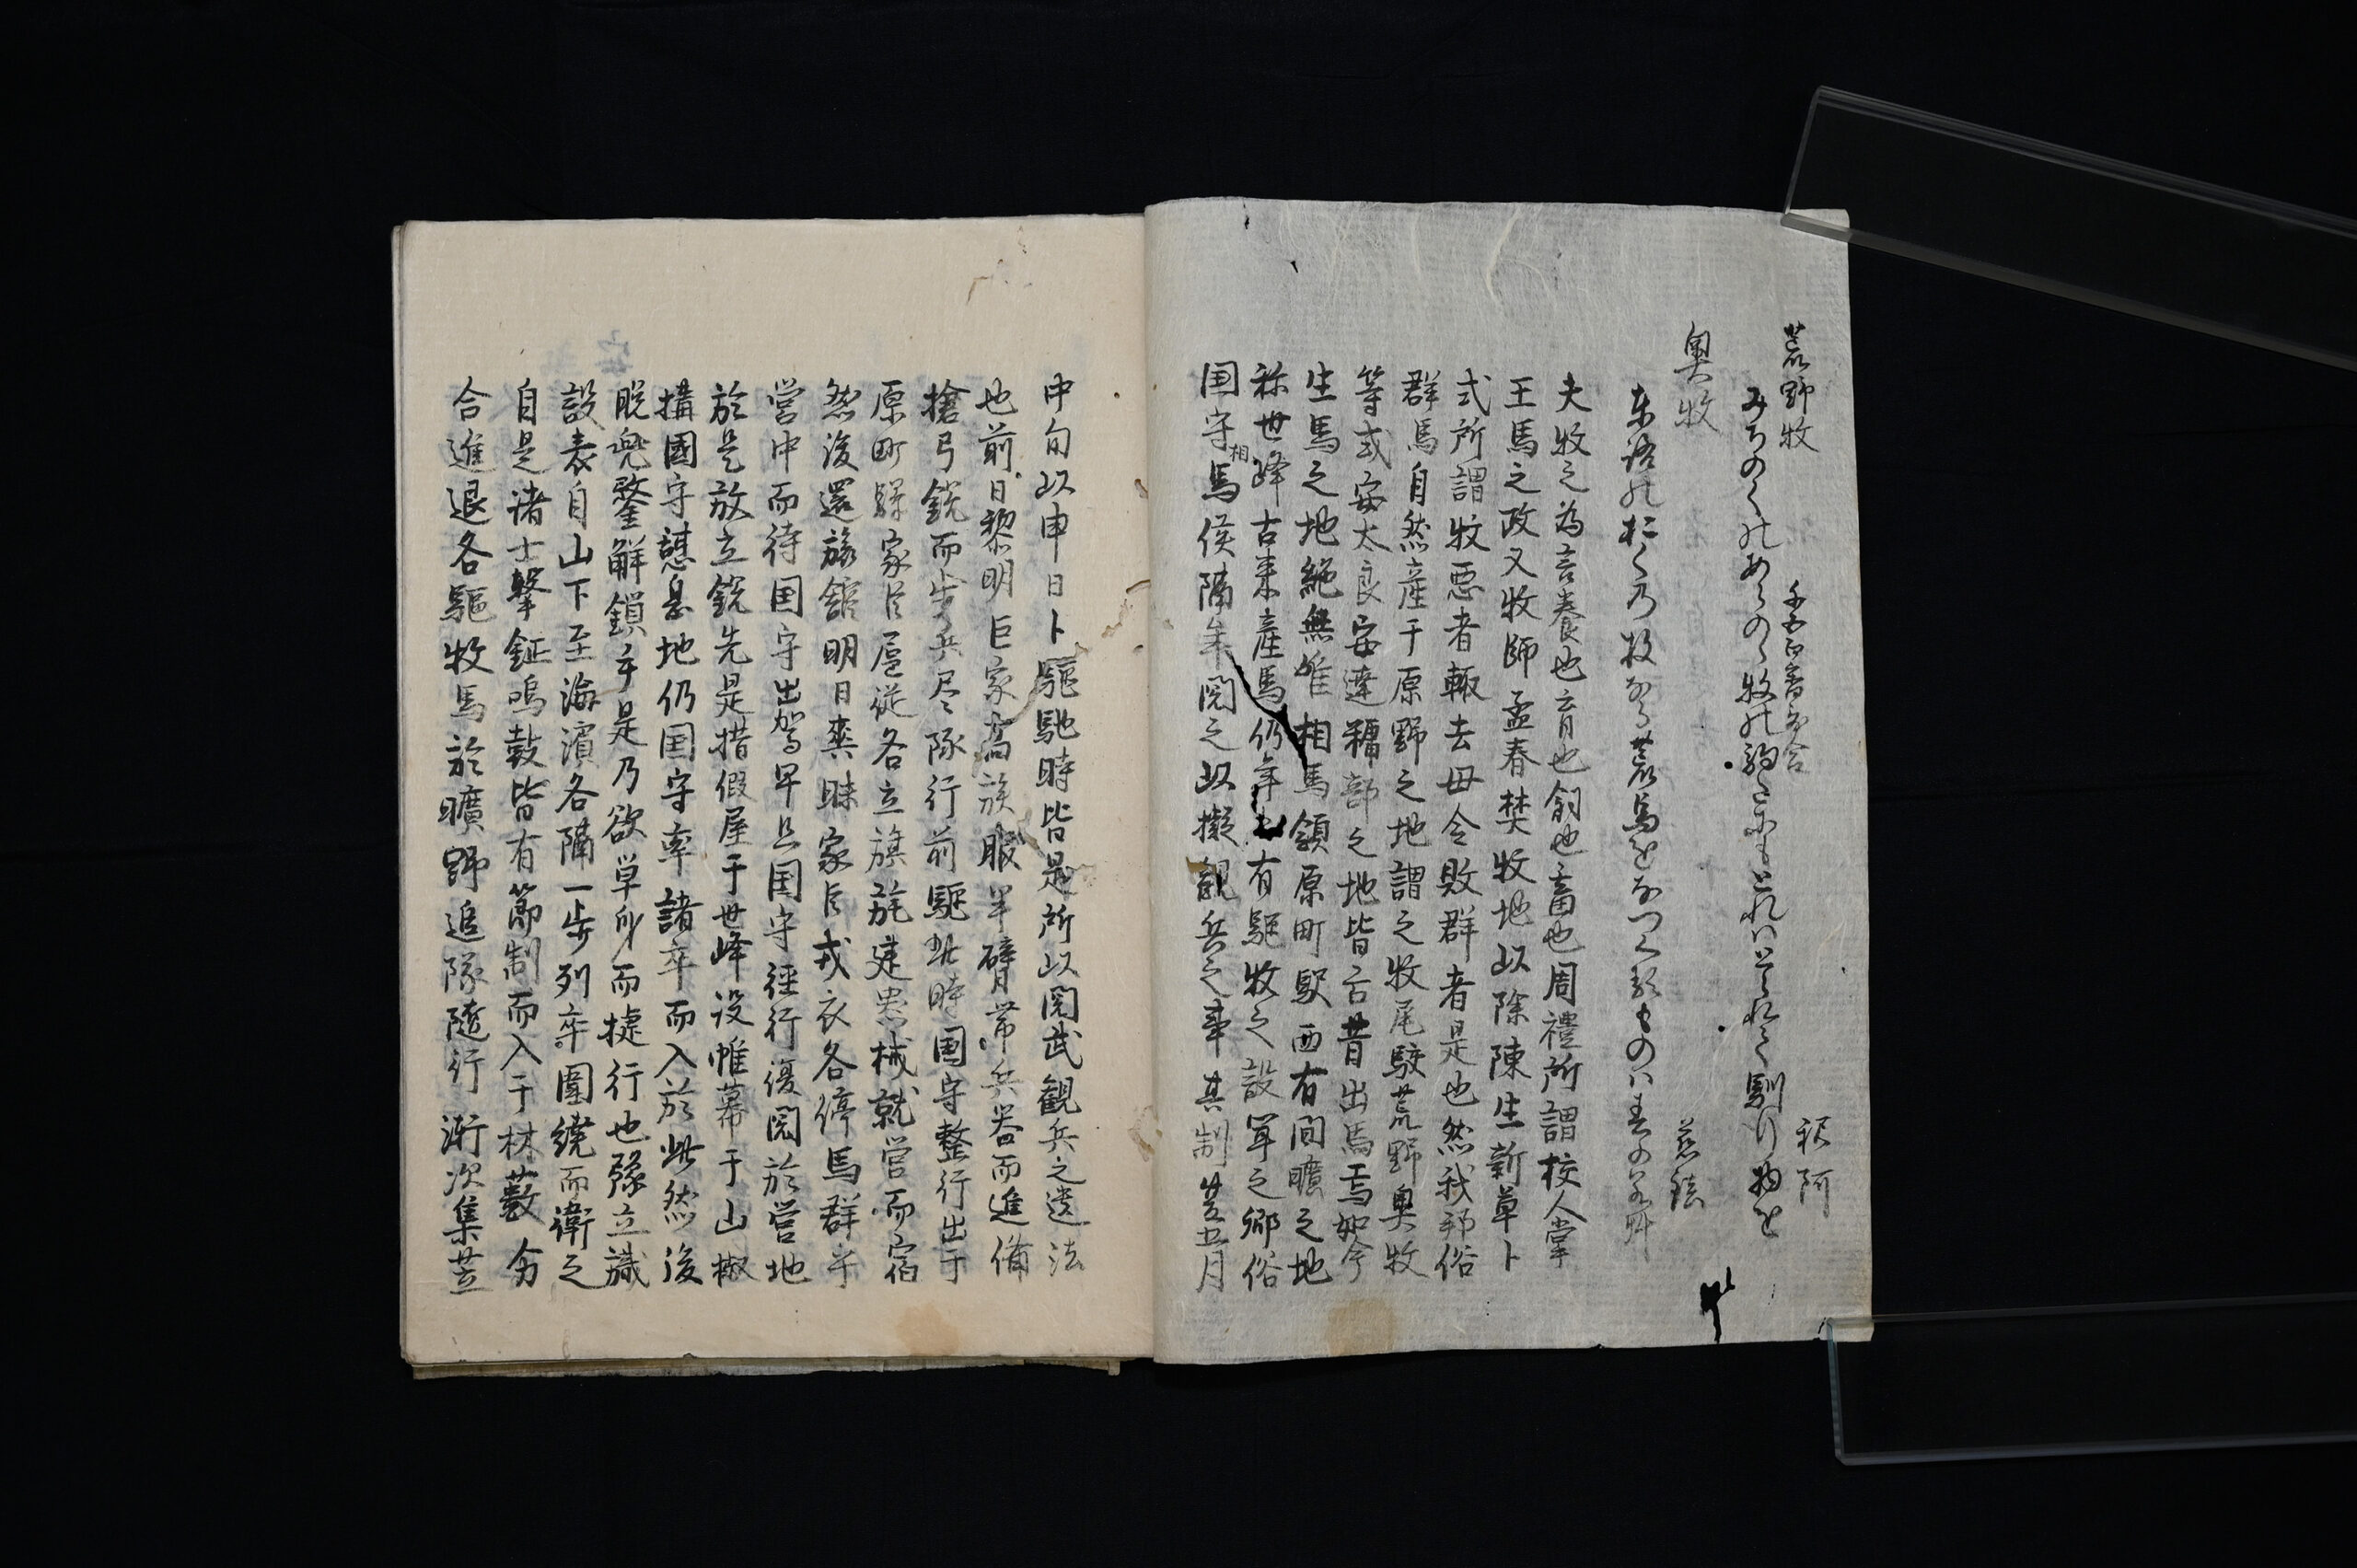 荒野牧
千五百番哥合
みちのくのあらのゝ牧の駒たにもとれはとられて馴行物を
奥牧
慈鎮
東路のおくの牧なる荒馬をなつくるものは春のわか草
夫牧之為言養也育也飼也畜也周禮所謂校人掌
王馬之政又牧師孟春焚牧地以除陳生新草卜
式所謂牧悪者輙去毋令敗群者是也然我邦俗
群馬自然産于原野之地謂之牧尾駮荒野奥牧
等或安太良安達糠部之地皆古昔出馬焉如今
生馬之地絶無唯相馬領原町駅西有間曠之地
称世峰古来産馬仍年有駆牧之設単之郷俗
国守相馬侯隔年閲之以擬観兵之事其制其五月
中旬以申日卜駈馳時皆是所以閲武観兵之遺法
也前日黎明巨家高族服半臂帯兵器而進備
槍弓銃而歩兵尽隊行前駈此時国守整行出于
原町驛家臣扈従各立旗旄建兵械就営而宿
然後還旅舘明日爽昧家臣戎衣各停馬群于
営中而待国守出駕早旦国守径行復閲於営地
於是放立銃先是措假屋于世峰設帷幕于山椒
構國守憩息地仍国守率諸卒而入於此然後
脱兜鍪解鎖手是乃欲単身而捷行也豫立識
設表自山下至海濱各隔一歩列卒圍繞而衛之
自是諸士撃鉦鳴鼓皆有節制而入于林薮分
合進退各駈牧馬於曠野追隊隨行漸次集其